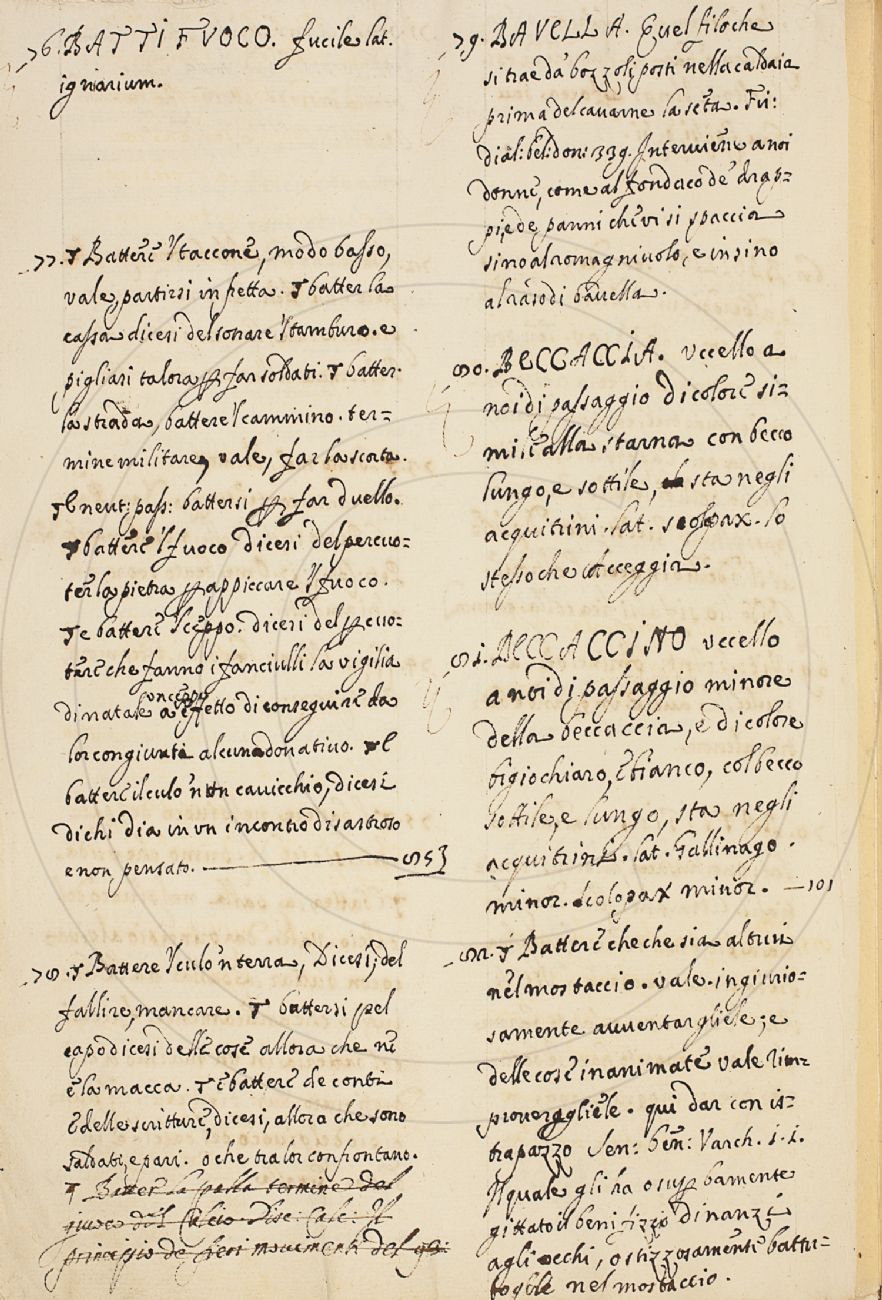 76. BATTIFVOCO. fucile lat.
ignarium.
77. ¶ Batterè 'l taccone, modo basso,
vale, partirsi in fretta. ¶ batter la
cassa dicesi del sonare 'l tamburo. e
pigliasi talora ꝑ far soldati. ¶ batter
la strada, battere 'l cammino. ter=
mine militare, vale, far la scorta.
¶ E neut: pass: battersi ꝑ far duello.
¶ batterè 'l fuoco dicesi del percuo=
ter la pietra ꝑ appiccare 'l fuoco.
¶ e batterè 'l ceppo. dicesi del ꝑcuo=
tere che fanno i fanciulli la vigilia
di natale un ceppo a effetto di conseguire da
lor congiunti alcun donativo. ¶ E
batterè il culo 'n un cavicchio, dicesi
di chi dia in un incontro disastroso
e non pensato. 853
78. ¶ Battere 'l culo 'n terra, Dicesi, del
fallire, mancare. ¶ battersi pel
capo dicesi delle cose allora che nè
è la macca. ¶ è batterè de conti
è delle scritturè, dicesi, allora che sono
saldati, e pari. o che tra lor confrontano.
¶ Batter la palla termine del
giuoco del Calcio. Disc: Calc: Il
principio de fieri movimenti del gi:
79. BAVELLA. Quel filo che
si trae da bozzoli posti nella caldaia
prima del cavarne la seta. Fir:
dial: bel: don: 339. Interviene a noi
donne, come al fondaco de drap=
pi, e de panni che vi si spaccia
sino al romagnuolo, e insino
al raso di bavella.
80. BECCACCIA. uccello a
noi di passaggio di colore si=
mile alla starna con becco
lungo, e sottile, sta negli
acquitrini. lat. scolpax. lo
stesso che acceggia.
81. BECCACCINO uccello
a noi di passaggio minore
della beccaccia, e di colore
bigio chiaro, è bianco, col becco
sottile, e lungo, sta negli
acquitrini. lat. Gallinago
minor. scolopax minor. — 101
82. ¶ Batterè che che sia altrui
nel mostaccio. vale. ingiurio=
samente avventargliele; e
delle cose inanimate vale rim=
proverargliele. qui dar con is=
trapazzo Sen: ben: Varch. 1. 1.
Il quale gli ha o suꝑbamente
gittato il benifizio dinanzi
agli occhi, o stizzosamente battu=
togle nel mostaccio.